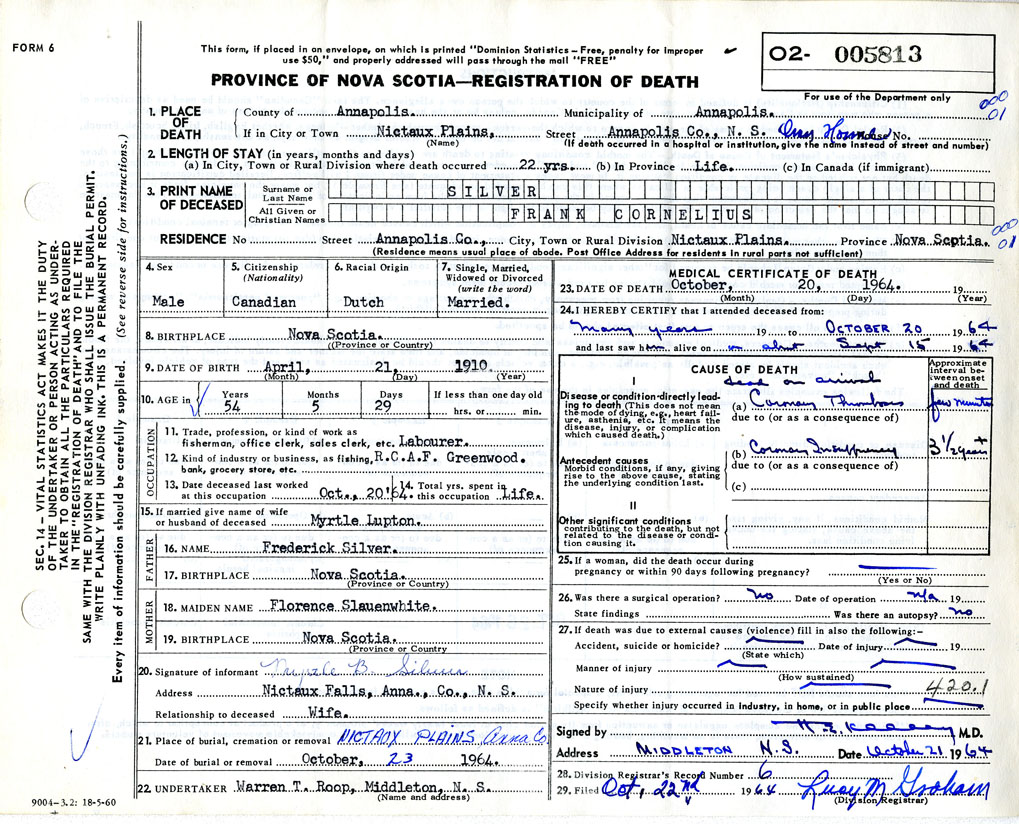 FORM 6
This form, if placed in an envelope, on which is printed "Dominion Statistics – Free, penalty for improper
use $50," and properly addressed will pass through the mail "FREE"
O2- 005813
For use of the Department only
PROVINCE OF NOVA SCOTIA—REGISTRATION OF DEATH
000
01
1. PLACE OF DEATH
County of Annapolis. Municipality of Annapolis.
If in City or Town Nictaux Plains, Street Annapolis Co., N. S. House No.
(Name) (If death occurred in a hospital or institution, give the name instead of street and number)
2. LENGTH OF STAY (in years, months and days)
(a) In City, Town or Rural Division where death occurred 22 yrs. (b) In Province Life. (c) In Canada (if immigrant)
3. PRINT NAME OF DECEASED
Surname or Last Name SILVER
All Given or Christian Names FRANK CORNELIUS
000
01
RESIDENCE No Street Annapolis Co., City, Town or Rural Division Nictaux Plains. Province Nova Scotia.
(Residence means usual place of abode. Post Office Address for residents in rural parts not sufficient)
SEC. 14 – VITAL STATISTICS ACT MAKES IT THE DUTY
OF THE UNDERTAKER OR PERSON ACTING AS UNDER-
TAKER TO OBTAIN ALL THE PARTICULARS REQUIRED
IN THE "REGISTRATION OF DEATH" AND TO FILE THE
SAME WITH THE DIVISION REGISTRAR WHO SHALL ISSUE THE BURIAL PERMIT.
WRITE PLAINLY WITH UNFADING INK. THIS IS A PERMANENT RECORD.
Every item of information should be carefully supplied. (See reverse side for instructions.)
4. Sex
Male
5. Citizenship
(Nationality)
Canadian
6. Racial Origin
Dutch
7. Single, Married,
Widowed or Divorced
(write the word)
Married.
8. BIRTHPLACE Nova Scotia.
(Province or Country)
9. DATE OF BIRTH April, 21, 1910
(Month) (Day) (Year)
10. AGE in
Years Months Days If less than one day old
54 5 29 hrs. or min.
OCCUPATION
11. Trade, profession, or kind of work as
fisherman, office clerk, sales clerk, etc. Labourer.
12. Kind of industry or business, as fishing, R.C.A.F. Greenwood.
bank, grocery store, etc.
13. Date deceased last worked
at this occupation Oct., 20'64.
14. Total yrs. spent in
this occupation Life.
15. If married give name of wife
or husband of deceased Myrtle Lupton.
FATHER
16. NAME Frederick Silver.
17. BIRTHPLACE Nova Scotia.
(Province or Country)
MOTHER
18. MAIDEN NAME Florence Slauenwhite.
19. BIRTHPLACE Nova Scotia.
(Province or Country
20. Signature of informant Myrtle B. Silver
Address Nictaux Falls, Anna., Co., N. S.
Relationship to deceased Wife.
21. Place of burial, cremation or removal NICTAUX PLAINS Anna Co
Date of burial or removal October, 23 1964.
22. UNDERTAKER Warren T. Roop, Middleton, N. S.
(Name and address)
9004–3.2: 18-5-60
MEDICAL CERTIFICATE OF DEATH
23. DATE OF DEATH October, 20, 1964. 19
(Month) (Day) (Year)
24. I HEREBY CERTIFY that I attended deceased from:
many years 19 to OCTOBER 20 1964
and last saw him alive on on about Sept 15 1964
CAUSE OF DEATH
Approximate
interval be-
tween onset
and death
dead on arrival
I
Disease or condition directly lead-
ing to death (This does not mean
the mode of dying, e.g., heart fail-
ure, asthenia, etc. It means the
disease, injury, or complication
which caused death.)
(a) Coronary Thrombosis few minutes
due to (or as a consequence of)
Antecedent causes
Morbid conditions, if any, giving
rise to the above cause, stating
the underlying condition last.
(b) Coronary Insufficiency 3 1/2 years +
due to (or as a consequence of)
(c)
II
Other significant conditions
contributing to the death, but not
related to the disease or condi-
tion causing it.
25. If a woman, did the death occur during
pregnancy or within 90 days following pregnancy?
(Yes or No)
26. Was there a surgical operation? no Date of operation n/a 19
State findings Was there an autopsy? no
27. If death was due to external causes (violence) fill in also the following:–
Accident, suicide or homicide? Date of injury 19
(State which)
Manner of injury
(How sustained)
Nature of injury 420.1
Specify whether injury occurred in industry, in home, or in public place
Signed by M.D.
Address MIDDLETON N.S. Date October 21 1964
28. Division Registrar's Record Number 6
29. Filed Oct, 22nd 1964 Lucy M Graham
(Division Registrar)